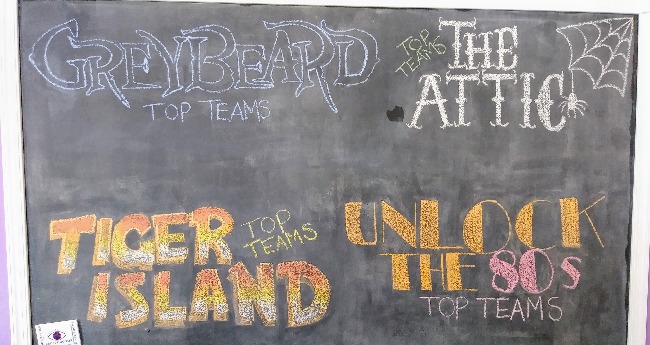 GREYBEARD
TOP TEAMS
TOP
TEAMS
THE
ATTIC
TIGER
ISLAND
TOP
TEAMS
UNLOCK
THE 80s
TOP TEAMS